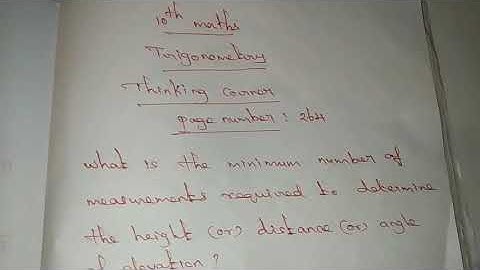 10th maths
Trigonometry
Thinking Corner
page number : 264
what is the minimum number of
measurements required to determine
the height (or) distance (or) angle
of elevation ?